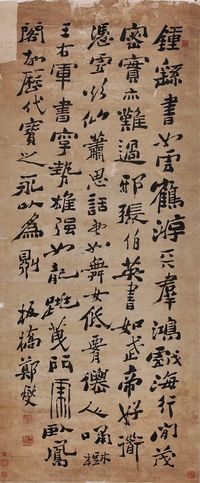 鍾繇書如雲鶴游天羣鴻戲海行間茂
密實亦難過邪張伯英書如武帝好衜
憑虛欲仙蕭思話書如舞女低腰僊人嘯樹
王右軍書字勢雄强如龍跳天門虎臥鳳
閣故歷代寶之永以為訓 板橋鄭燮